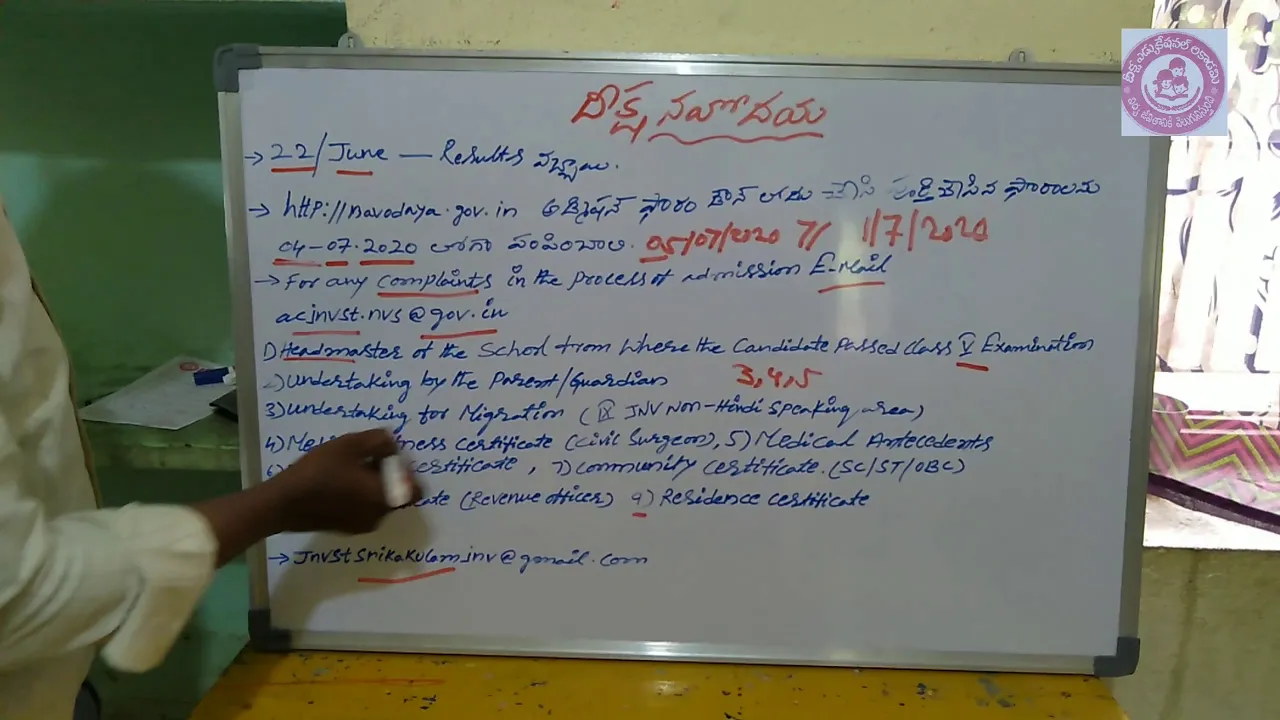 దీక్ష నవోదయ
→ 22/June — Results వచ్చాయి.
→ http://navodaya.gov.in అడ్మిషన్ ఫారం డౌన్ లోడు చేసి పూర్తి చేసిన ఫారాలను
04-07-2020 లోగా పంపించాలి. 05/07/2020 7/ 1/7/2020
→ For any complaints in the process of admission E-Mail
acjnvst.nvs@gov.in
1) Headmaster of the School from where the Candidate Passed class V Examination
2) Undertaking by the Parent/Guardian 3,4,5
3) Undertaking for Migration (IX JNV Non-Hindi speaking area)
4) Me ness certificate (civil Surgeon), 5) Medical Antecedents
6) certificate, 7) community certificate (SC/ST/OBC)
cate (Revenue officer) 9) Residence certificate
→ Jnvstsrikakulamjnv@gmail.com
దీక్ష ఎడ్యుకేషనల్ అకాడమి